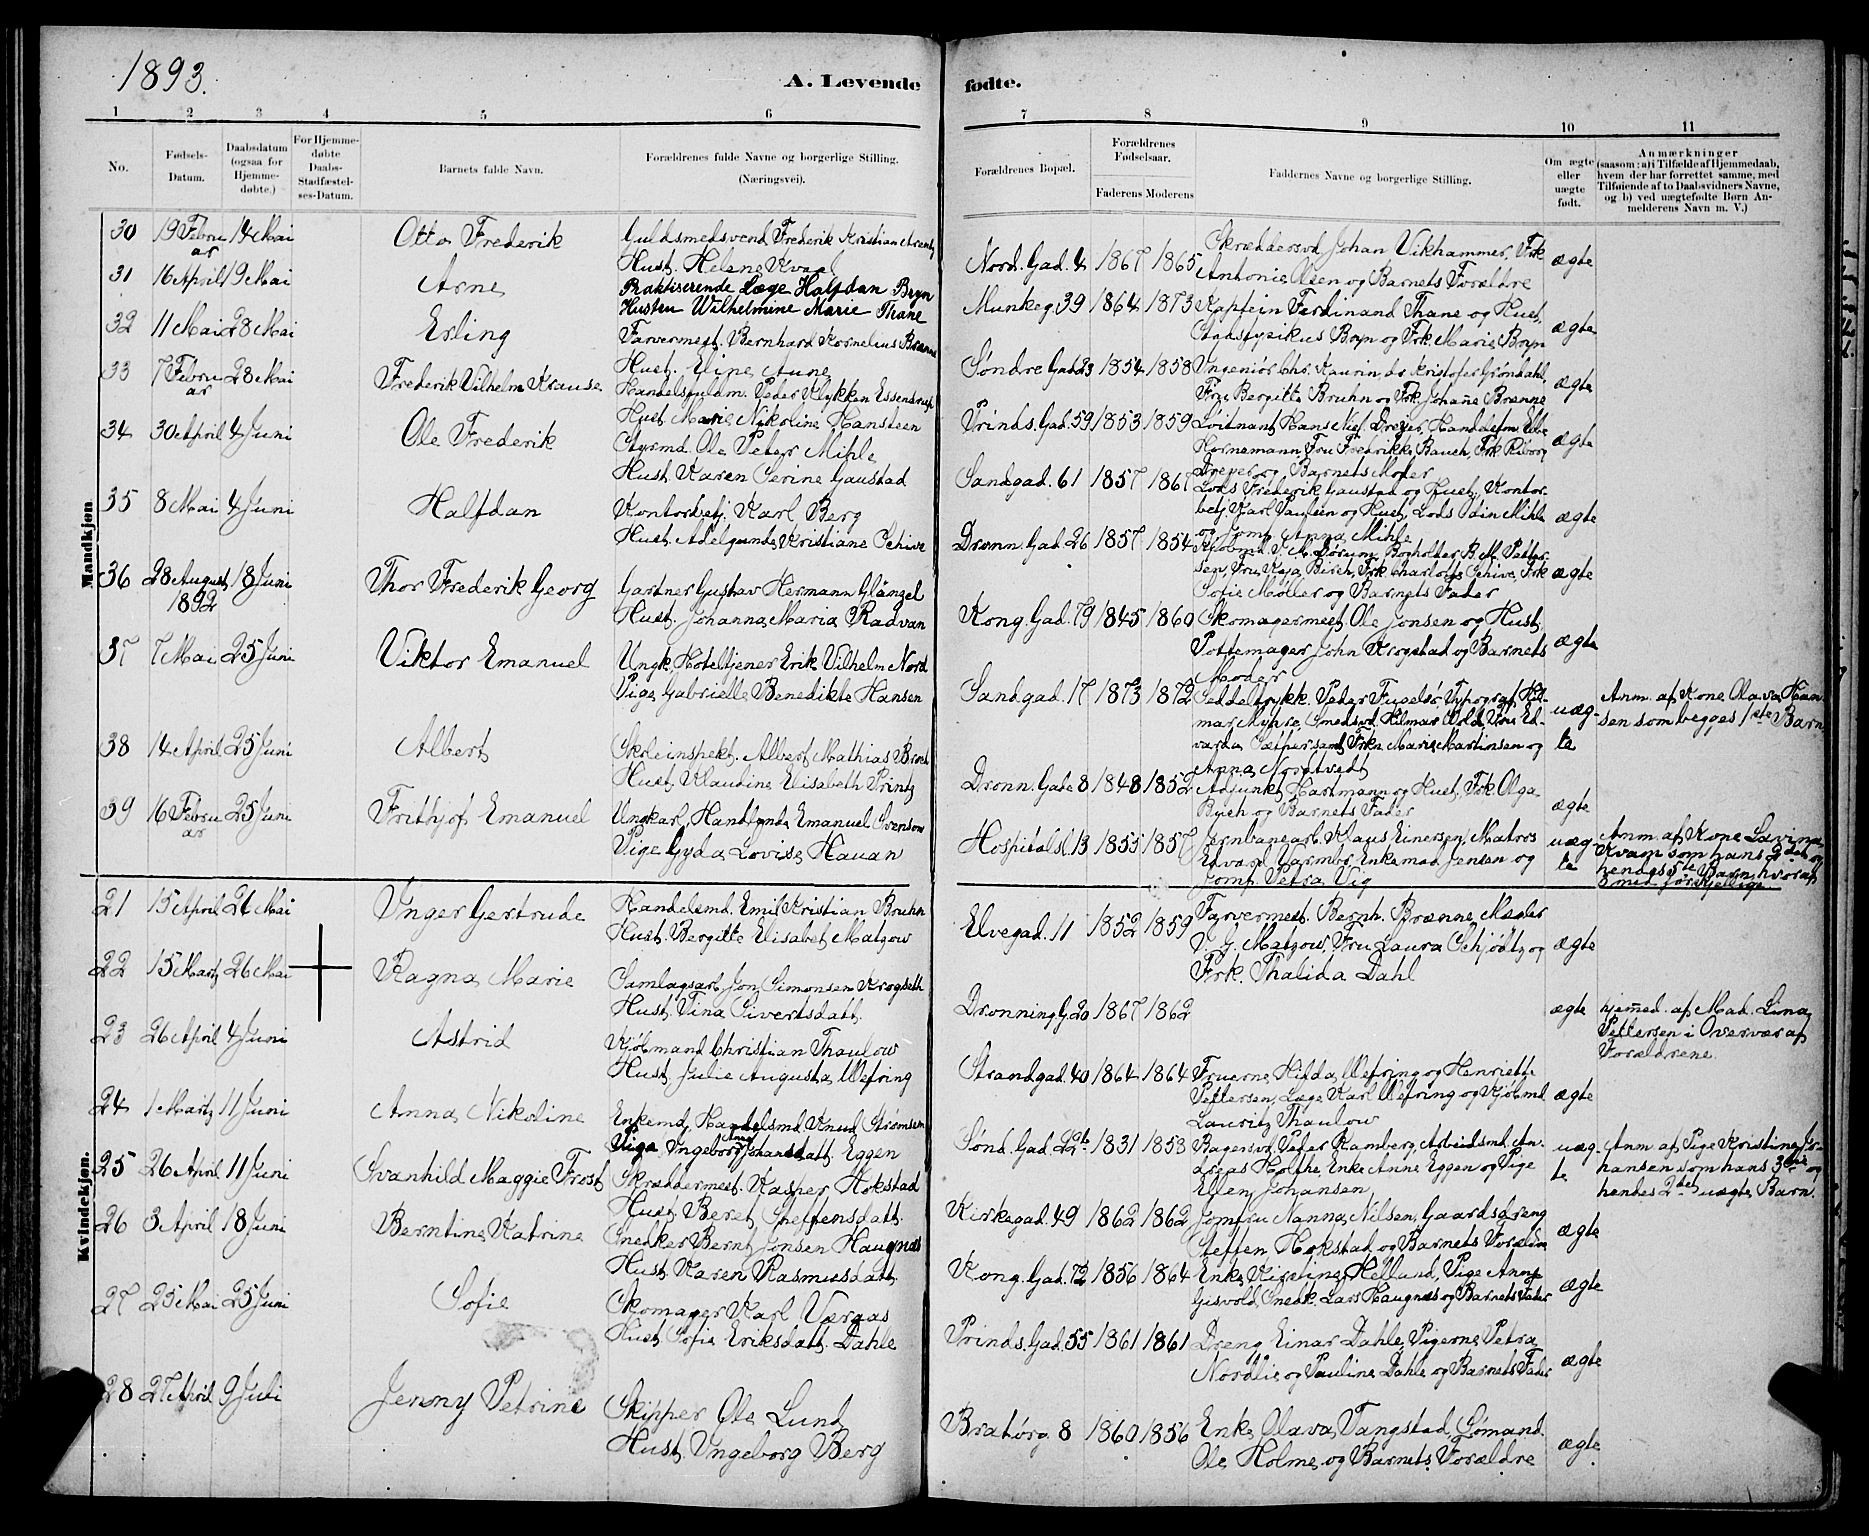 1893.
A. Levende
fødte.
1 2 3 4 5 6
7 8 9 10 11
No.
Fødsels-
Datum.
Daabsdatum
(ogsaa for
Hjemme-
døbte.)
For Hjemme-
døbte
Daabs-
Stadfæstel-
ses-Datum.
Barnets fulde Navn.
Forældrenes fulde Navne og borgerlige Stilling.
(Næringsvei).
Forældrenes Bopæl.
Forældrenes
Fødselsaar.
Faderens Moderens
Faddernes Navne og borgerlige Stilling.
Om ægte
eller
uægte
født.
Anmærkninger
(saasom: a) i Tilfælde af Hjemmedaab,
hvem der har forrettet samme, med
Tilføiende af to Daabsvidners Navne,
og b) ved uægtefødte Børn An-
melderens Navn m. V.)
Mandkjøn
30 19 Febru
ar 14 Mai Otto Frederik
Guldsmedsvend Frederik Kristian
Hust. Helene Kvaal
Nord. Gad. 4 1867 1865
Skræddersvd Johan Vikhammer, Frk
Antonie Olsen og Barnets Forældre
ægte
31 16 April 19 Mai Arne
Praktiserende Læge Halfdan Bryn
Husten Wilhelmine Marie Thane
Munkeg 39 1864 1873
Kaptein Ferdinand Thane og Hust,
Stadsfysikus Bryn og Frk. Marie Bryn
ægte
32 11 Mai 28 Mai Erling
Farvermest. Bernhard Kornelius Brænne
Hust. Eline Aune
Søndre Gad 23 1854 1858
Ingeniør Chr. Kaurin, do Kristofer Grøndahl,
Fru Bergitte Bruhn og Frk. Johanne Brænne
ægte
33 7 Febru
ar 28 Mai Frederik Vilhelm Krause
Handelsfuldm. Peder Klykken Essendrup
Hust Marie Nikoline Hansteen
Prinds. Gad. 59 1853 1859
Loitnant Hans Dreyer, Handelsfm
Hornemann, Fru Fredrikke Bauch, Frk Riborg
Dreyer og Barnets Moder
ægte
34 30 April 4 Juni Ole Frederik
Styrmd. Ole Peter Mihle
Hust. Karen Serine Gaustad
Sandgad. 61 1857 1867
Lods Frederik Gaustad og Hust, Kontor-
betj. Karl Paulsen og Hust, Lods Odin Mihle
og Jomf. Anna Mihle
ægte
35 8 Mai 4 Juni Halfdan
Kontorbetj. Karl Berg
Hust. Adelgunde Kristiane Schive
Dronn. Gad. 26 1857 1854
Kjøbmd Sørum, Bogholder B. M. Petter-
sen, Fru Kaja Birch, Frk Charlotte Schive, Frk
Sofie Møller og Barnets Fader
ægte
36 28 August
1892 18 Juni Thor Frederik Georg
Gartner Gustav Hermann Glängel
Hust. Johanna Maria Radvan
Kong. Gad. 79 1845 1860
Skomagermest. Ole Jonsen og Hust.
Pottemager John Krogstad og Barnets
Moder
ægte
37 7 Mai 25 Juni Viktor Emanuel
Ungk. Hoteltjener Erik Vilhelm Nord
Pige Gabrielle Benedikte Hansen
Sandgad. 17 1873 1872
Seddeltrykk. Peder Fugelsø, Typograf Hil-
mar Myhre, Smedsvd. Hilmar Wold, Ed-
varda Sæther samt Frkn Marie Martinsen og
Anna Nordtvedt
uæg-
te
Anm. af Kone Olava Han-
sen som begges 1ste Barn.
38 14 April 25 Juni Albert
Skoleinspekt. Albert Mathias
Hust. Klaudine Elisabeth Printz
Dronn. Gade 8 1848 1852
Adjunkt Hartmann og Hust, Frk Olga
Bych og Barnets Fader
ægte
39 16 Febru
ar 25 Juni Frithjof Emanuel
Ungkarl, Emanuel Svenson
Pige Gyda Lovise Hauan
Hospitalsl. 13 1855 1857
Jernbanearb. Klaus Einersen, Matros
Edvard Garmbo, Enkemad Jensen og
Jomf. Petra Vig
uæg-
te
Anm. af Kone Lavina
Kvam som hans 2det og
hendes 5te Barn, hvoraf
3 med forskjellige.
Kvindekjøn.
21 15 April 21 Mai Inger Gertrude
Handelsmd. Emil Kristian Bruhn
Hust. Bergitte Elisabet Matzow
Elvegad. 11 1852 1859
Farvermest. Bernh. Brænne, Mægler
Matzow, Fru Laura Schjødtz og
Frk. Thalida Dahl
ægte
22 15 Marts 26 Mai Ragna Marie
Samlagsarb. Jon Simonsen Krogseth
Hust. Tina Sivertsdatt.
Dronning G. 20 1867 1862
ægte
hjemmed. af Mad. Lina
Pettersen i Overvær af
Forældrene.
23 26 April 4 Juni Astrid
Kjøbmand Christian Thaulow
Hust. Julie Augusta Wefring
Strandgad. 40 1864 1864
Fruerne Hilda Wefring og Henriette
Pettersen, Læge Karl Wefring og Kjøbmd
Lauritz Thaulow
ægte
24 1 Marts 11 Juni Anna Nikoline
Enkemd, Handelsmd Knud Strømsem
Pige Ingeborg Anna Johansdatt. Eggen
Sønd. Gad. 22b 1831 1853
Bagersvd. Peter Ramberg, Arbeidsmd. An-
dreas Holthe, Enke Anne Eggen og Pige
Ellen Johansen
uæg-
te
Anm. af Pige Kristine Jo-
hansen som hans 3die og
hendes 2det uægte Barn.
25 26 April 11 Juni Svanhild Maggie Frost
Skræddermest. Kasper Hokstad
Hust. Beret Steffensdatt.
Kirkegad. 49 1862 1862
Jomfru Nanna Nilsen, Gaardsdreng
Steffen Hokstad og Barnets Forældre
ægte
26 3 April 18 Juni Berntine Katrine
Snedker Bernt Jonsen Haugnæs
Hust. Karen Rasmusdatt.
Kong. Gad. 72 1856 1864
Enke Kirstine Helland, Pige Anne
Gisvold, Snedk. Lars Haugnæs og Barnets Fader
ægte
27 25 Mai 25 Juni Sofie
Skomager Karl Væraas
Hust. Sofie Eriksdatt. Dahle
Prinds. Gad. 55 1861 1861
Dreng Einar Dahle, Pigerne Petra
Nordlie og Pauline Dahle og Barnets Fader
ægte
28 27 April 9 Juli Jenny Petrine
Skipper Ole Lund
Hust. Ingeborg Berg
Bratørg. 8 1860 1856
Enke Olava Tangstad, Sømand
Ole Holme og Barnets Forældre
ægte